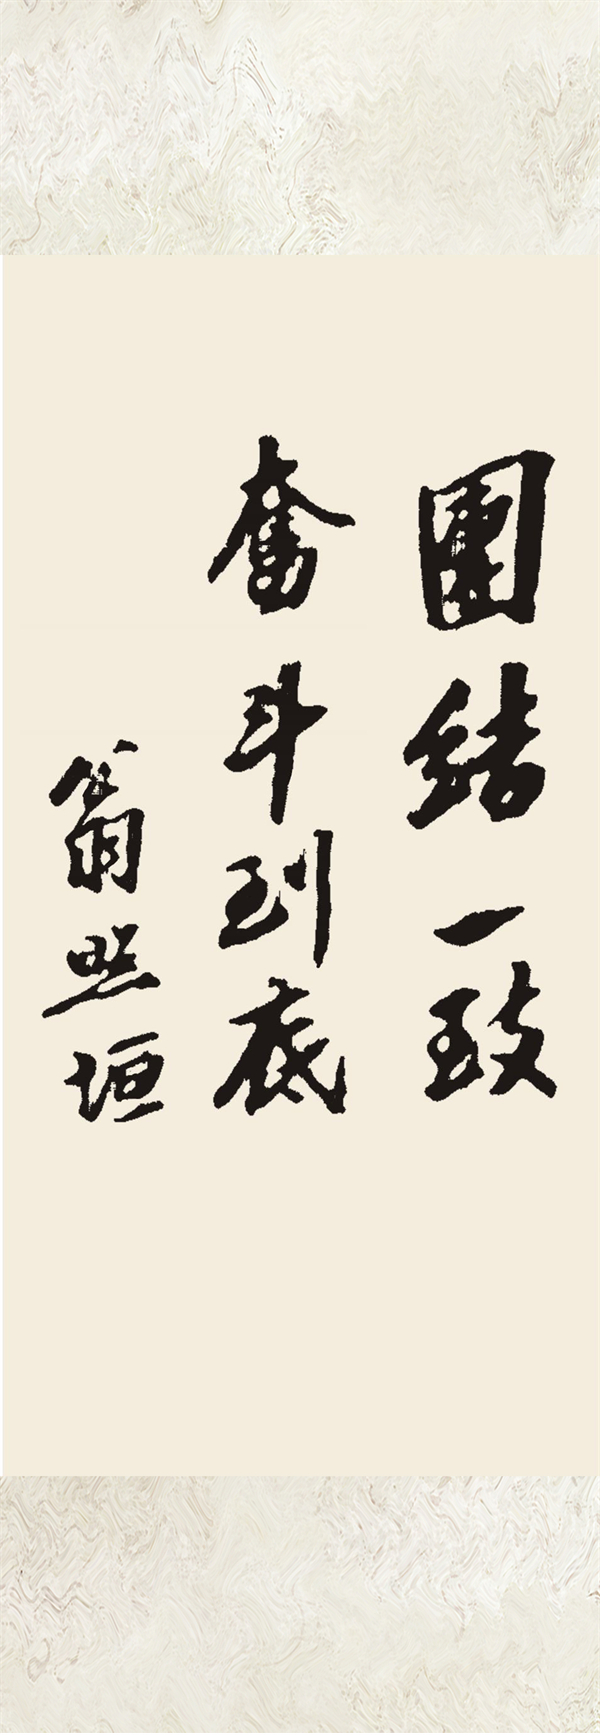 團结一致
奮斗到底
翁照垣